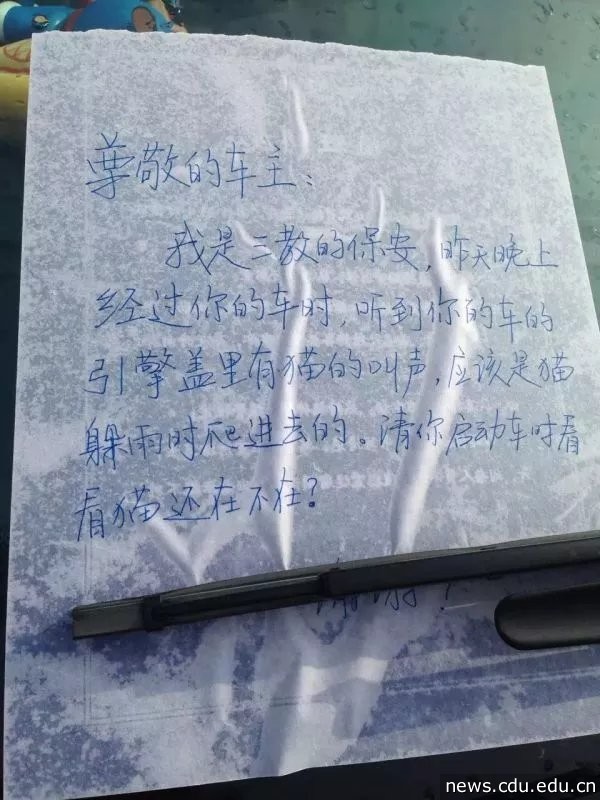 尊敬的车主：
我是三教的保安，昨天晚上
经过你的车时，听到你的车的
引擎盖里有猫的叫声，应该是猫
躲雨时爬进去的。请你启动车时看
看猫还在不在？
news.cdu.edu.cn